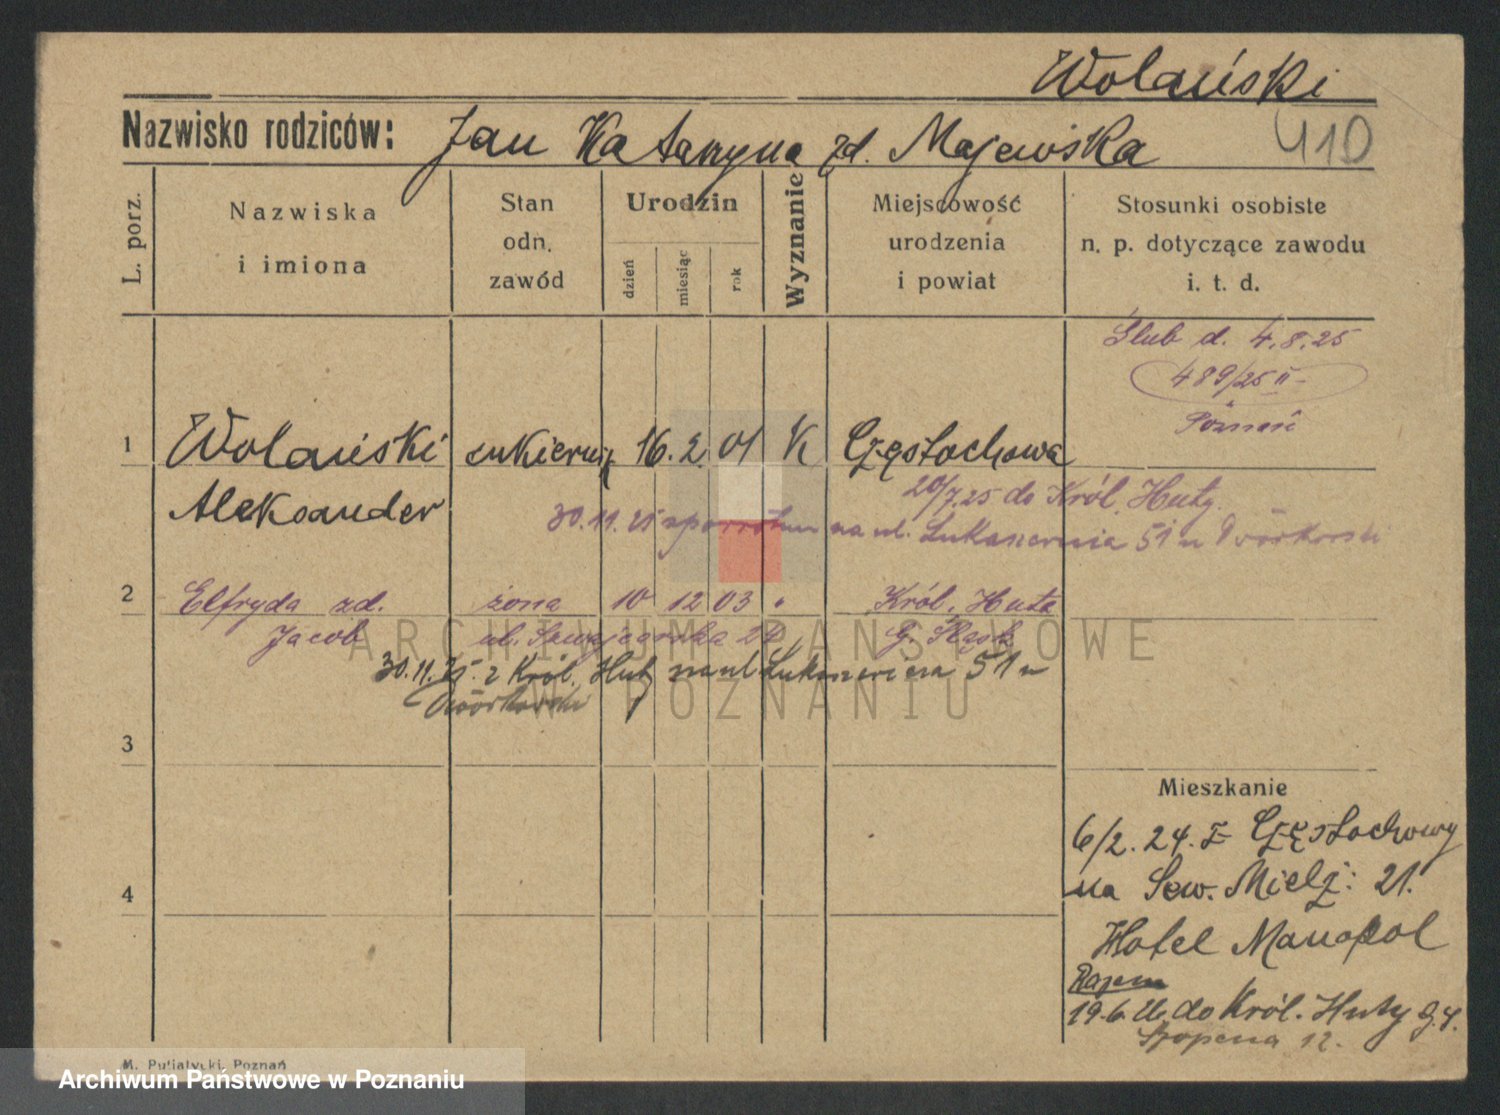 Wolański
Nazwisko rodziców: Jan Katarzyna zd. Majewska
410
L. porz.
Nazwiska
i imiona
Stan
odn.
zawód
Urodzin
dzień
miesiąc
rok
Wyznanie
Miejscowość
urodzenia
i powiat
Stosunki osobiste
n. p. dotyczące zawodu
i. t. d.
Ślub d. 4.8.25
489/25 II
Poznań
1 Wolański cukiernik 16. 2. 01 K Częstochowa
Aleksander
20/7.25 do Król. Huty.
30.11.25 z powrotem na ul. 51
2 Elfryda zd. żona 10 12 03 " Król. Huta
Jacob ul. Szwajcarska 24 G. Śląsk
30.11.25. z Król. Huty na ul. 51
3
4
Mieszkanie
6/2. 24. z Częstochowy
na Sew. Mielż: 21.
Hotel Manopol
Razem
19.6.26 do Król. Huty g. ś.
Szopena 12.
M. Putiatycki, Poznań
ARCHIWUM PAŃSTWOWE
W POZNANIU
Archiwum Państwowe w Poznaniu